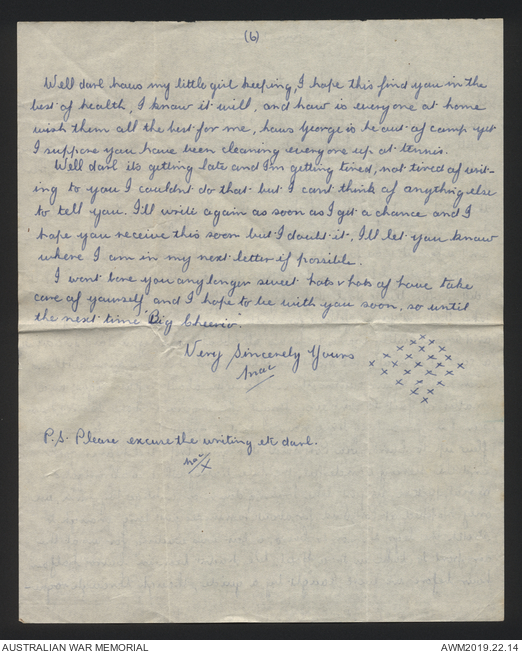 (6)
Well darl haws my little girl keeping, I hope this find you in the
best of health, I know it will, and how is everyone at home
wish them all the best for me, haws George is he out of camp yet
I suppose you have been cleaning everyone up at tennis.
Well darl its getting late and I'm getting tired, not tired of writ-
ing to you I couldnt do that but I cant think of anything else
to tell you. I'll write again as soon as I get a chance and I
hope you receive this soon but I doubt it, I'll let you know
where I am in my next letter if possible.
I wont bore you any longer sweet hats & hats of love take
care of yourself and I hope to be with you soon, so until
the next time "Big Cheerio".
Very Sincerely Yours
Mac
x x x x x x x x x x x x x x x x x x x x x x x x x
P.S. Please excuse the writing etc darl.
Mac/x
AUSTRALIAN WAR MEMORIAL
AWM2019.22.14